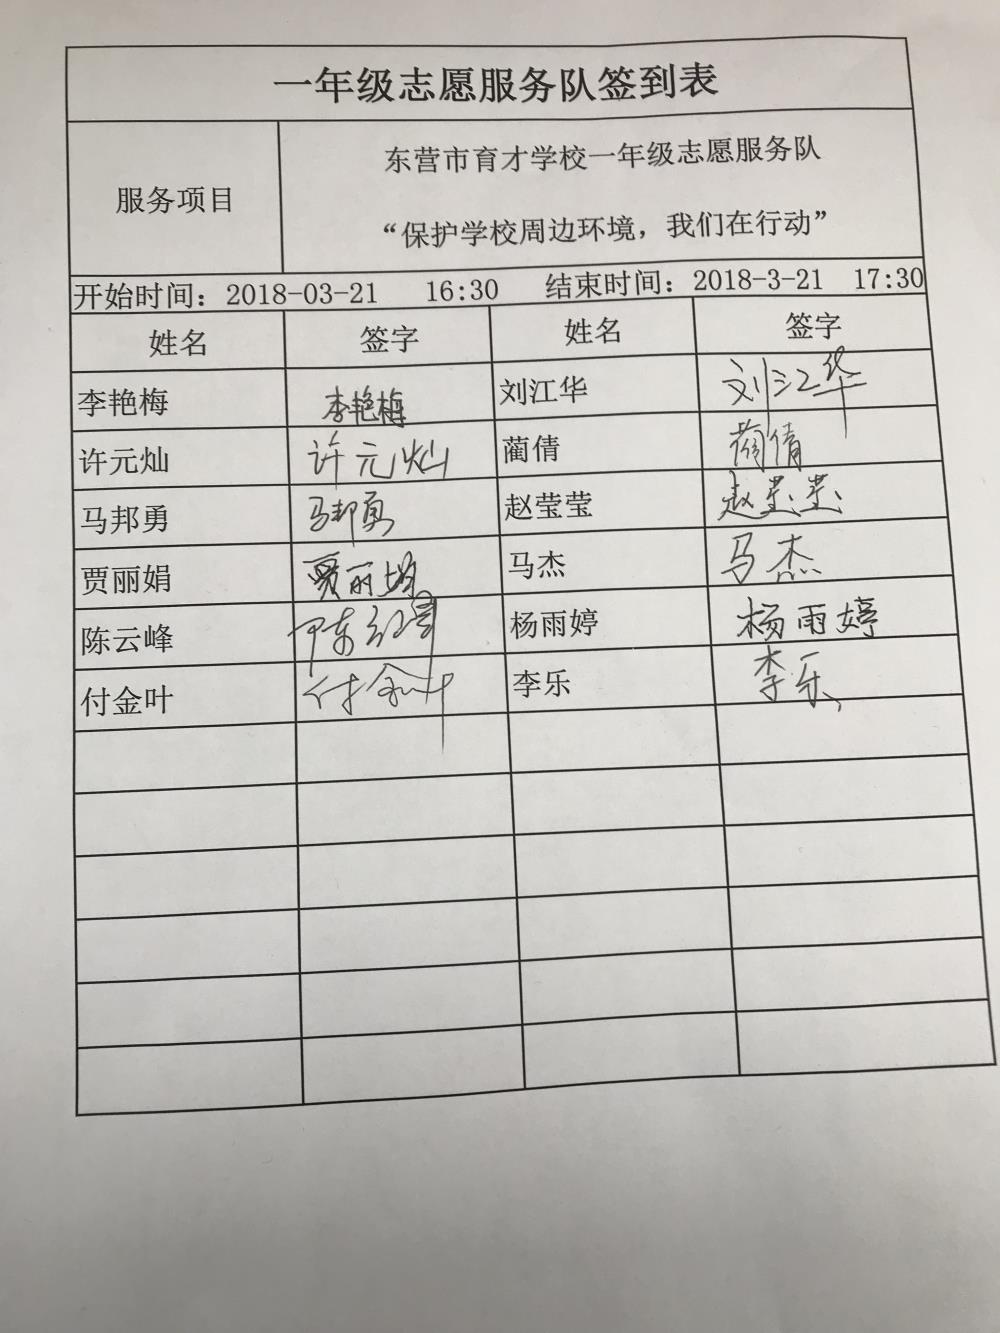 一年级志愿服务队签到表
服务项目
东营市育才学校一年级志愿服务队
“保护学校周边环境，我们在行动”
开始时间：2018-03-21 16:30 结束时间：2018-3-21 17:30
姓名 签字 姓名 签字
李艳梅 李艳梅 刘江华 刘江华
许元灿 许元灿 蔺倩 蔺倩
马邦勇 马邦勇 赵莹莹 赵莹莹
贾丽娟 贾丽娟 马杰 马杰
陈云峰 杨雨婷 杨雨婷
付金叶 付金叶 李乐 李乐